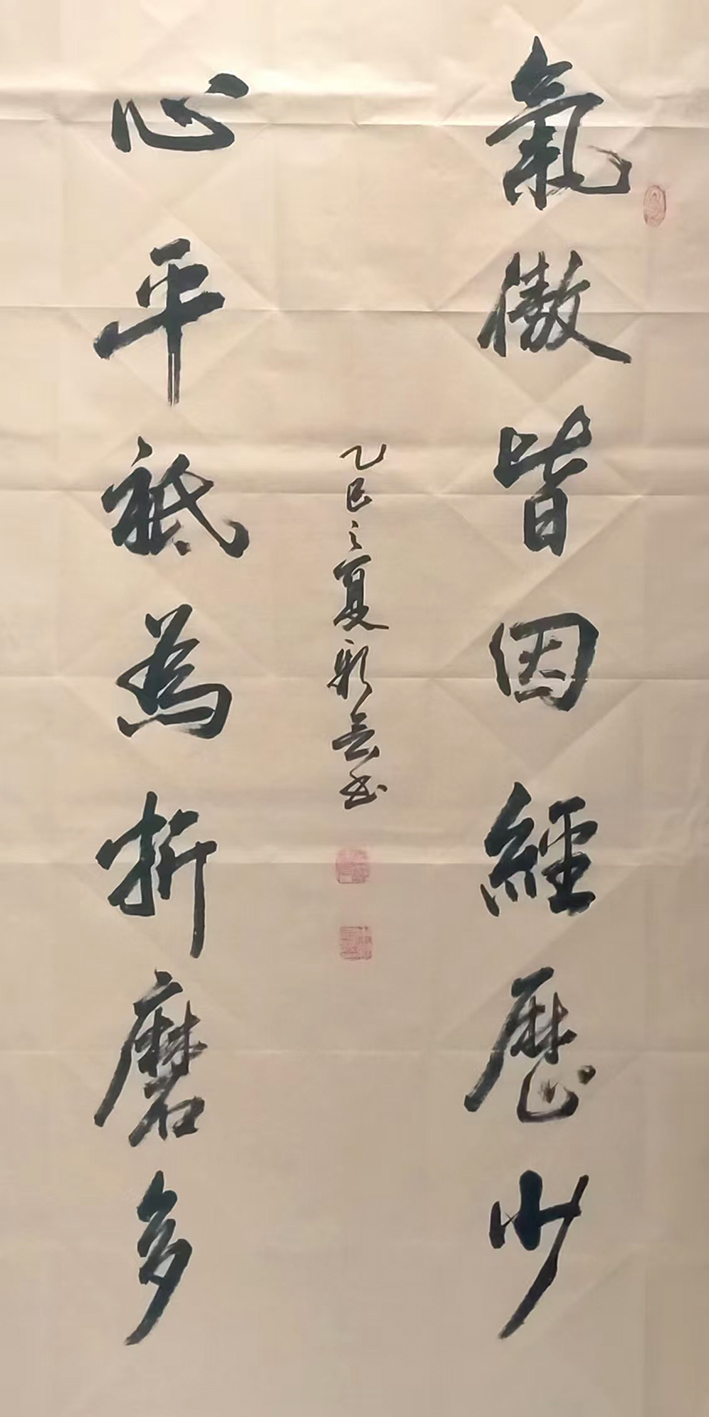 氣傲皆因經歷少
心平祗為折磨多
乙巳之夏彩雲书